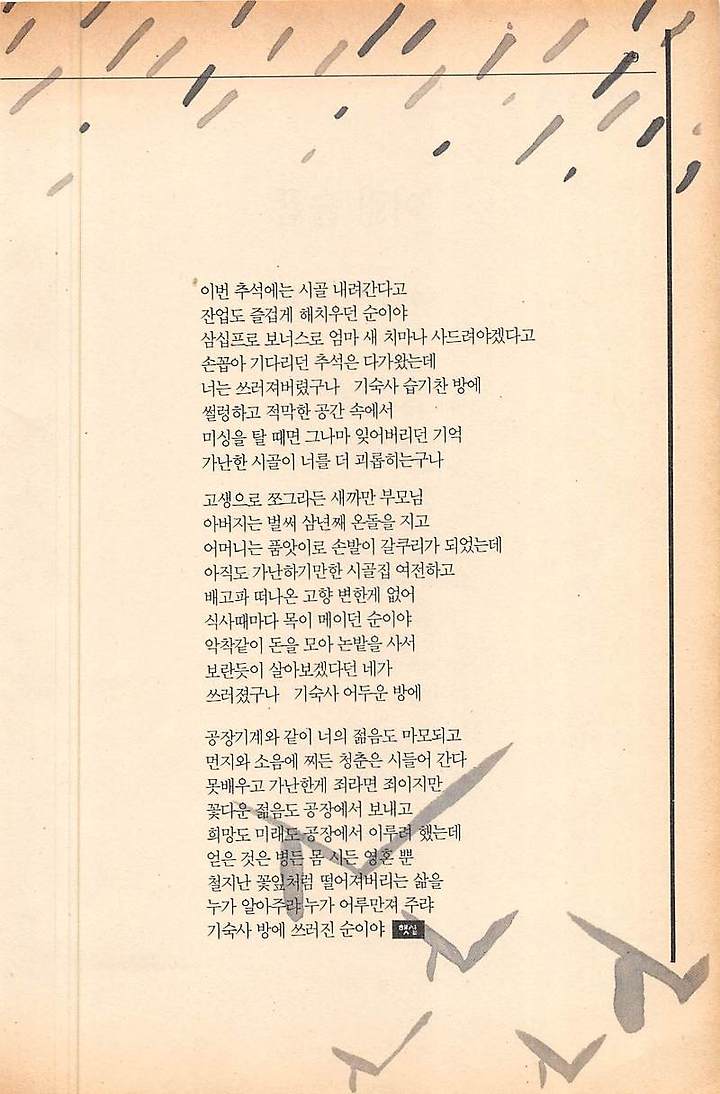 29
이번 추석에는 시골 내려간다고
잔업도 즐겁게 해치우던 순이야
삼십프로 보너스로 엄마 새 치마나 사드려야겠다고
손꼽아 기다리던 추석은 다가왔는데
너는 쓰러져버렸구나 기숙사 습기찬 방에
썰렁하고 적막한 공간 속에서
미싱을 탈 때면 그나마 잊어버리던 기억
가난한 시골이 너를 더 괴롭히는구나
고생으로 쪼그라든 새까만 부모님
아버지는 벌써 삼년째 온돌을 지고
어머니는 품앗이로 손발이 갈쿠리가 되었는데
아직도 가난하기만한 시골집 여전하고
배고파 떠나온 고향 변한게 없어
식사때마다 목이 메이던 순이야
악착같이 돈을 모아 논밭을 사서
보란듯이 살아보겠다던 네가
쓰러졌구나 기숙사 어두운 방에
공장기계와 같이 너의 젊음도 마모되고
먼지와 소음에 찌든 청춘은 시들어 간다
못배우고 가난한게 죄라면 죄이지만
꽃다운 젊음도 공장에서 보내고
희망도 미래도 공장에서 이루려 했는데
얻은 것은 병든 몸 시든 영혼 뿐
철지난 꽃잎처럼 떨어져버리는 삶을
누가 알아주랴 누가 어루만져 주랴
기숙사 방에 쓰러진 순이야 햇살